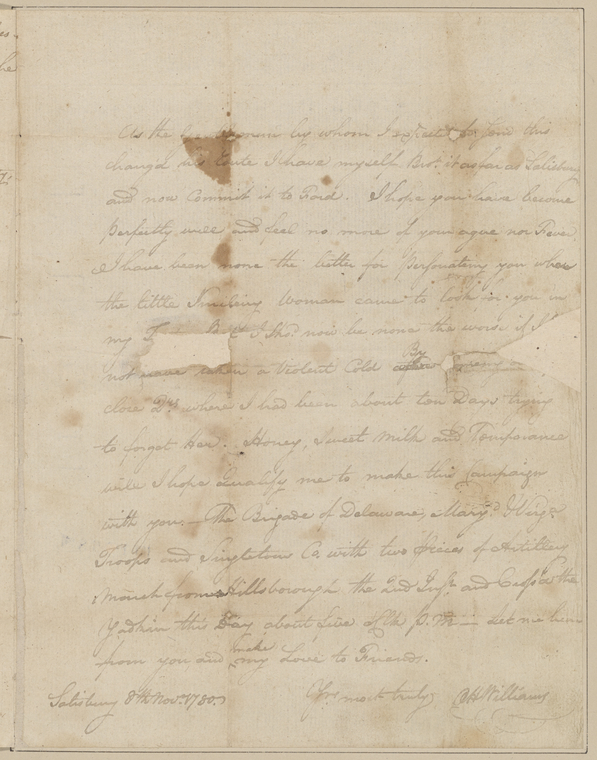 As the by whom I expected to send this
chang'd his route I have myself Bro.t it as far as Salisbury
and now Commit it to Ford. I hope you have become
perfectly well and feel no more of your ague nor Fever
I have been none the better for Personating you when
the little Smiling Woman came to look for you in
my & I Sho.d now be none the worse if I
not have taken a Violent Cold By
close where I had been about ten Days trying
to forget Her. Honey, Sweet Milk and Temperance
will I hope Qualify me to make this Campaign
with you. — The Brigade of Delaware, Mary.d & Virg.a
Troops and Singletons Co. with two Pieces of Artillery
March from Hillsborough the 2nd Inst. and the
Yadkin this Day about five oClk P.M. — Let me hear
from you and make my Love to Friends.
Salisbury 8th Nov.r 1780. Yrs most truly OHWilliams